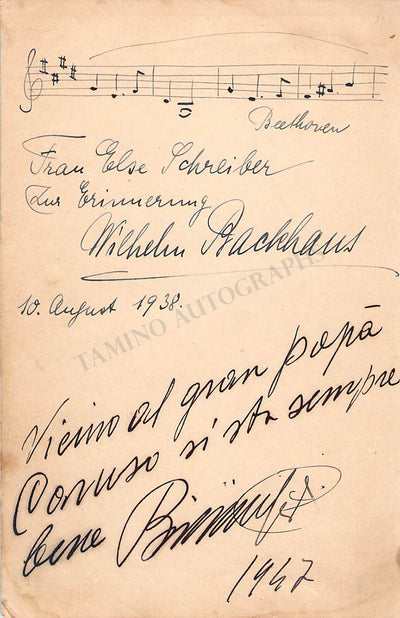 Beethoven
Frau Else Schreiber
zur Erinnerung
Wilhelm Backhaus
10. August 1938.
TAMINO AUTOGRAPHS
Vicino al gran papà
Caruso si sta sempre
bene
1947